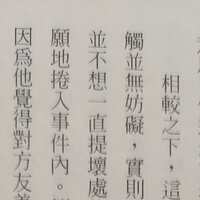 相較之下，這
觸並無妨礙，實則
並不想一直提壞處
願地捲入事件內。
因為他覺得對方友善